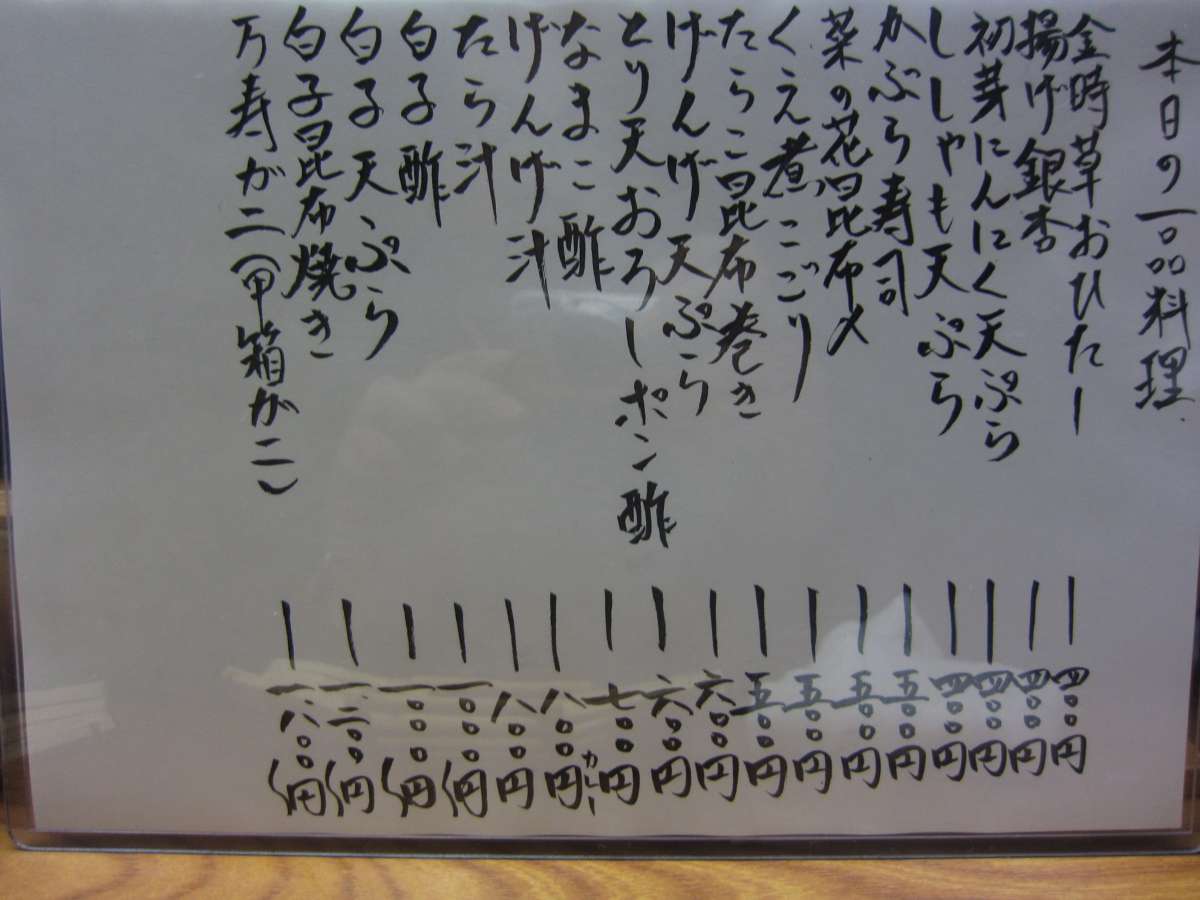 本日の一品料理
金時草おひたし ― 四〇〇円
揚げ銀杏 ― 四〇〇円
初芽にんにく天ぷら ― 四〇〇円
ししゃも天ぷら ― 四〇〇円
かぶら寿司 ― 五〇〇円
菜の花昆布〆 ― 五〇〇円
くえ煮こごり ― 五〇〇円
たらこ昆布巻き ― 五〇〇円
げんげ天ぷら ― 六〇〇円
とり天おろしポン酢 ― 六〇〇円
なまこ酢 ― 七〇〇円
げんげ汁 ― 八〇〇円
たら汁 ― 八〇〇円
白子酢 ― 一〇〇〇円〜
白子天ぷら ― 一〇〇〇円〜
白子昆布焼き ― 一二〇〇円〜
万寿がニ(甲箱がニ) ― 一八〇〇円〜